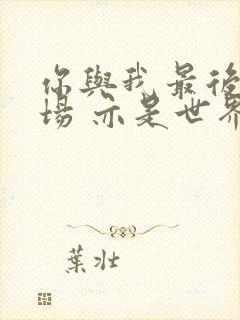 你與我 最後
場 亦是世界
葉壯